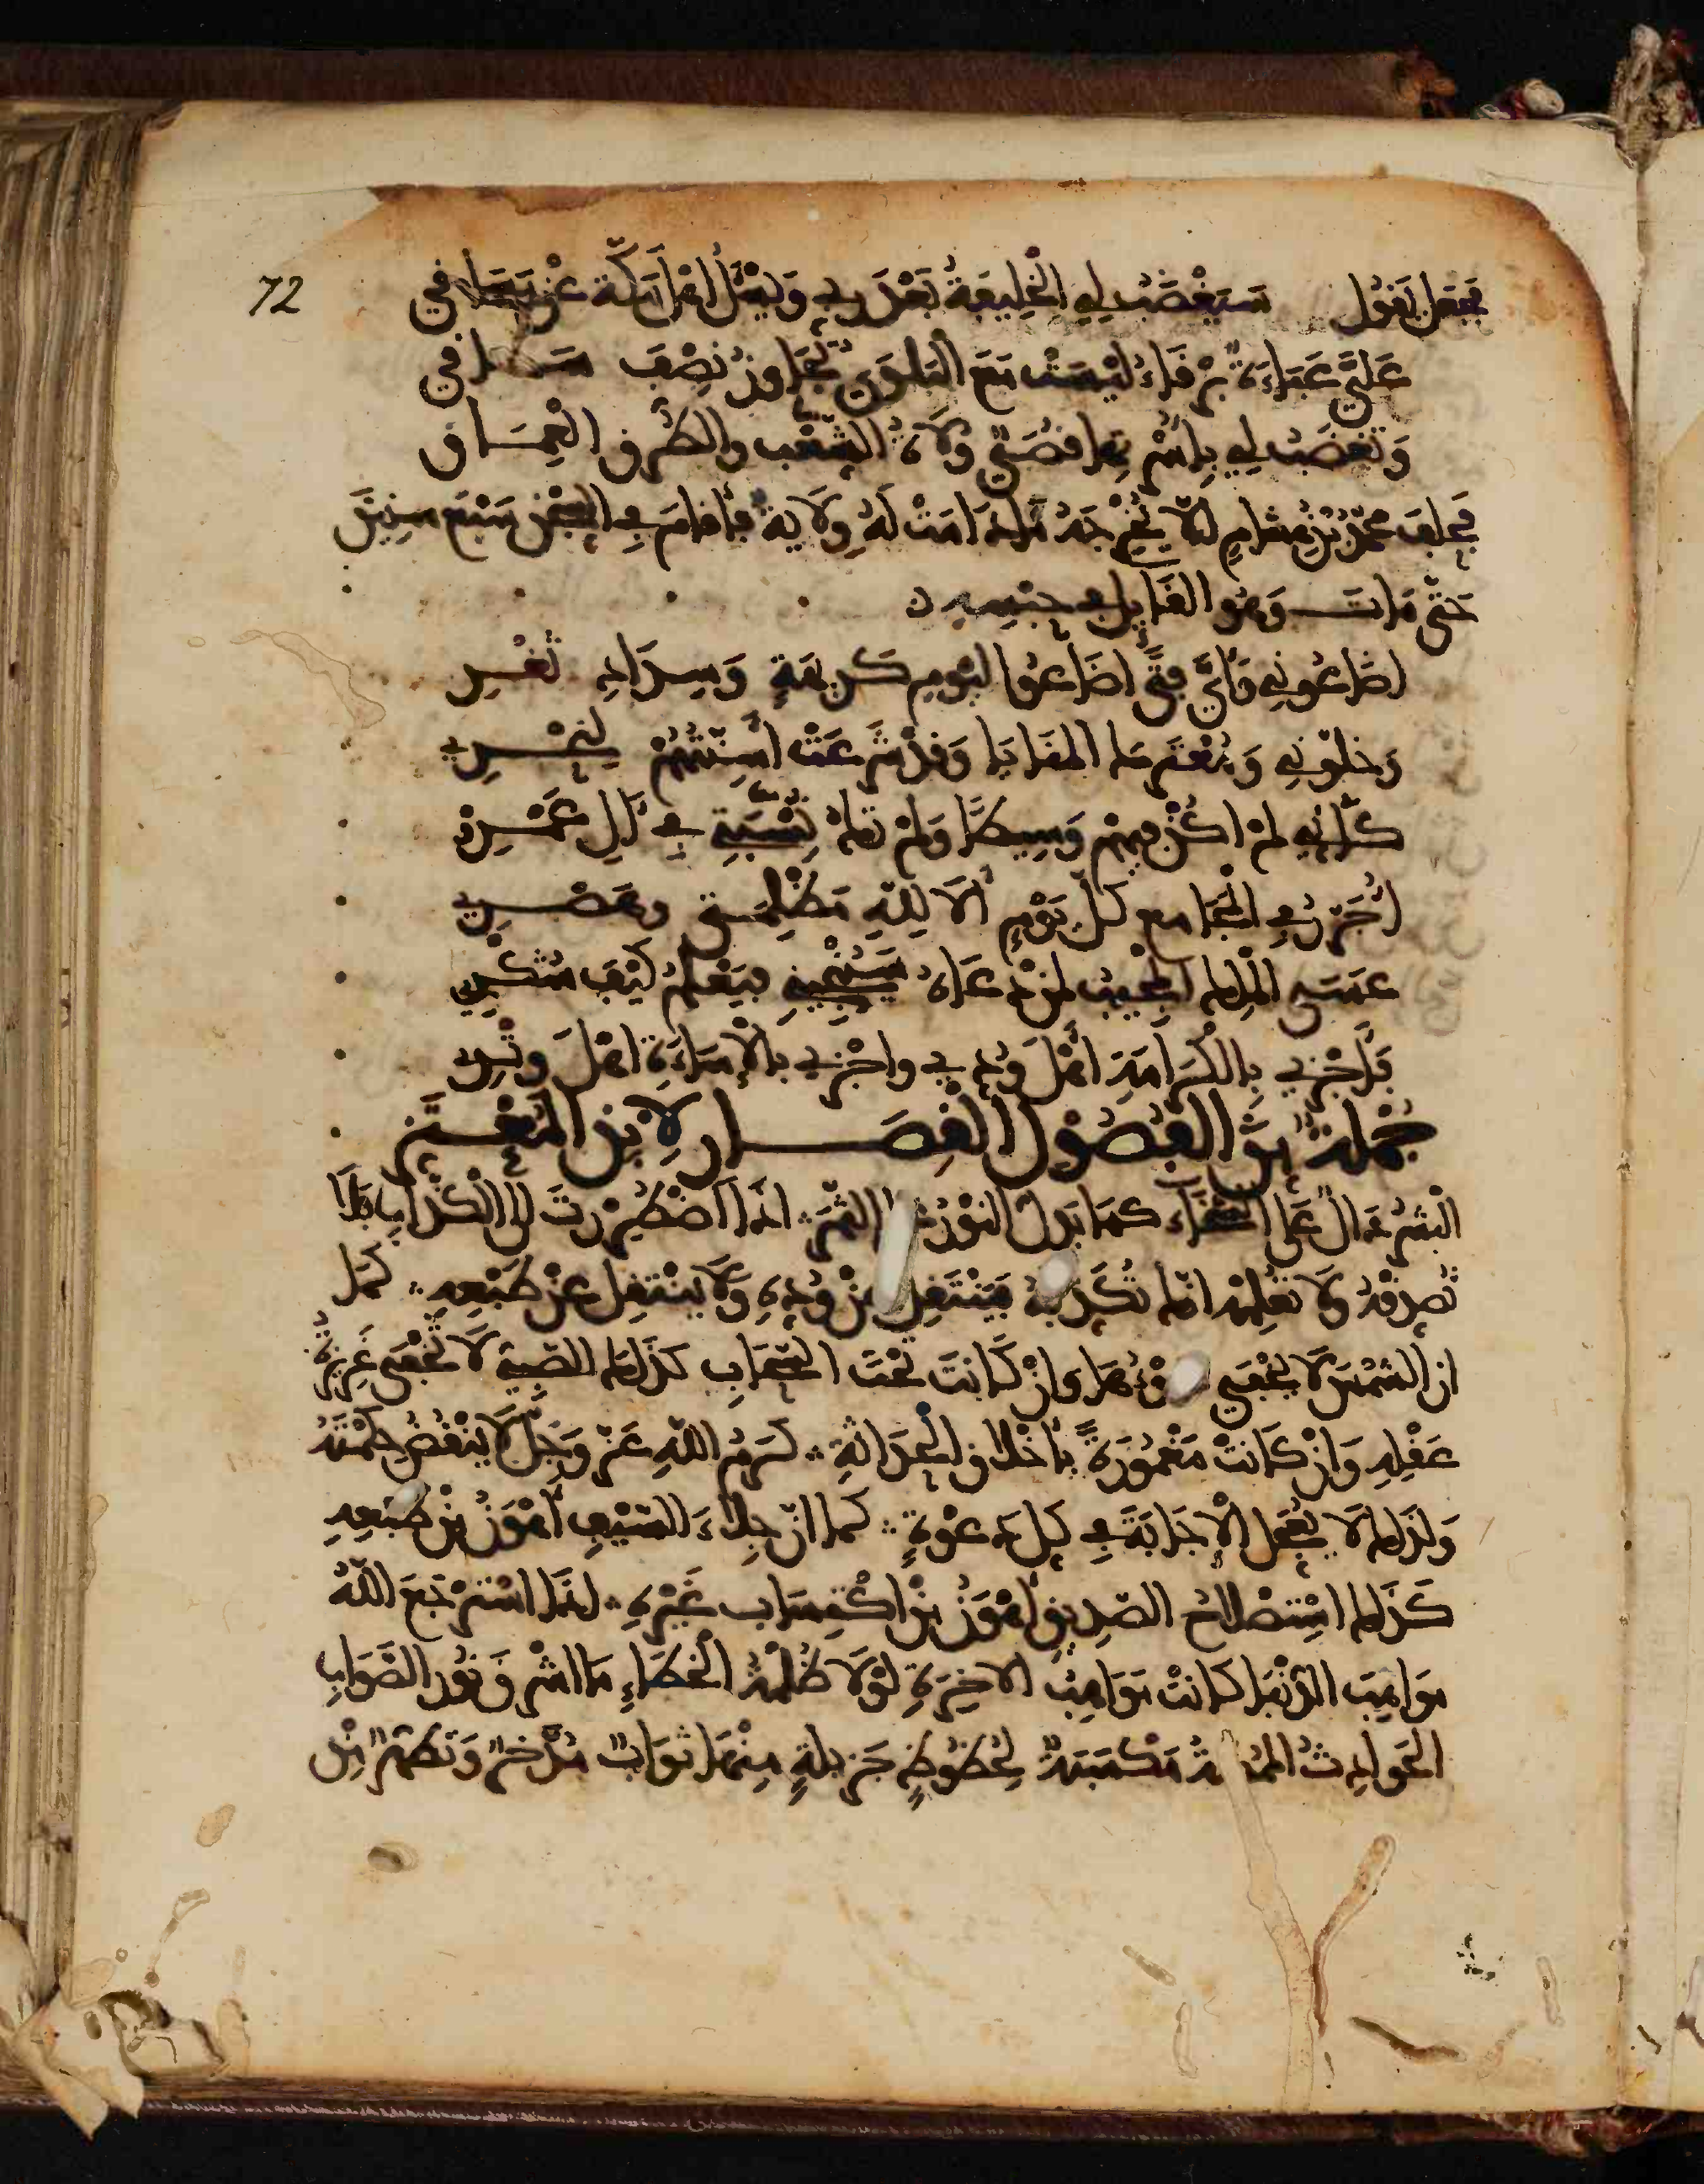 72
فجعل يقول سيغضب لي الخليفة بعد رق ويسئل اهل مكة عن مساقي
علي عباءة برقاء ليست مع البلوى تجاوز نصف ساقي
وتغضب لي باسرها قصي ولاة الشعب والطرق العماق
فحلف محمد بن هشام الا يخرجه ما دامت له ولاية فأقام في السجن سبع سنين
حتى مات وهو القايل في حبسه
اضاعوني وأي فتى اضاعوا ليوم كريهة وسداد ثغر
وخلوني ومعترك المنايا وقد شرعت اسنتهم لنحري
كأني لم اكن فيهم وسيطا ولم تك نسبتي في آل عمرو
اجرر في الجامع كل يوم ألا لله مظلمتي وصبري
عسى الملك المجيب لمن دعاه سينجيني فيعلم كيف شكري
فأجزي بالكرامة اهل ودي واجزي بالاساءة اهل وتري
جملة من الفصول القصار لابن المعتز
البشر دال على السخاء كما يدل النور على الثمر اذا اضطررت الى الكذاب فلا
تصدقه ولا تعلمه انك تكذبه فينتقل عن وده ولا ينتقل عن طبعه كما
ان الشمس لا يخفى ضوءها وان كانت تحت السحاب كذلك الصبي لا تخفى غريزة
عقله وان كانت مغمورة بأخلاق الحداثة كرم الله عز وجل لا ينقض حكمته
ولذلك لا يجعل الاجابة في كل دعوة كما ان جلاء السيف اهون من طبعه
كذلك استصلاح الصديق اهون من اكتساب غيره اذا استرجع الله
مواهب الدنيا كانت مواهب الاخرة لولا ظلمة الخطاء ما اشرق نور الصواب
الحوادث الممضة مكسبة لحظوظ جزيلة منها ثواب مدخر وتطهير من